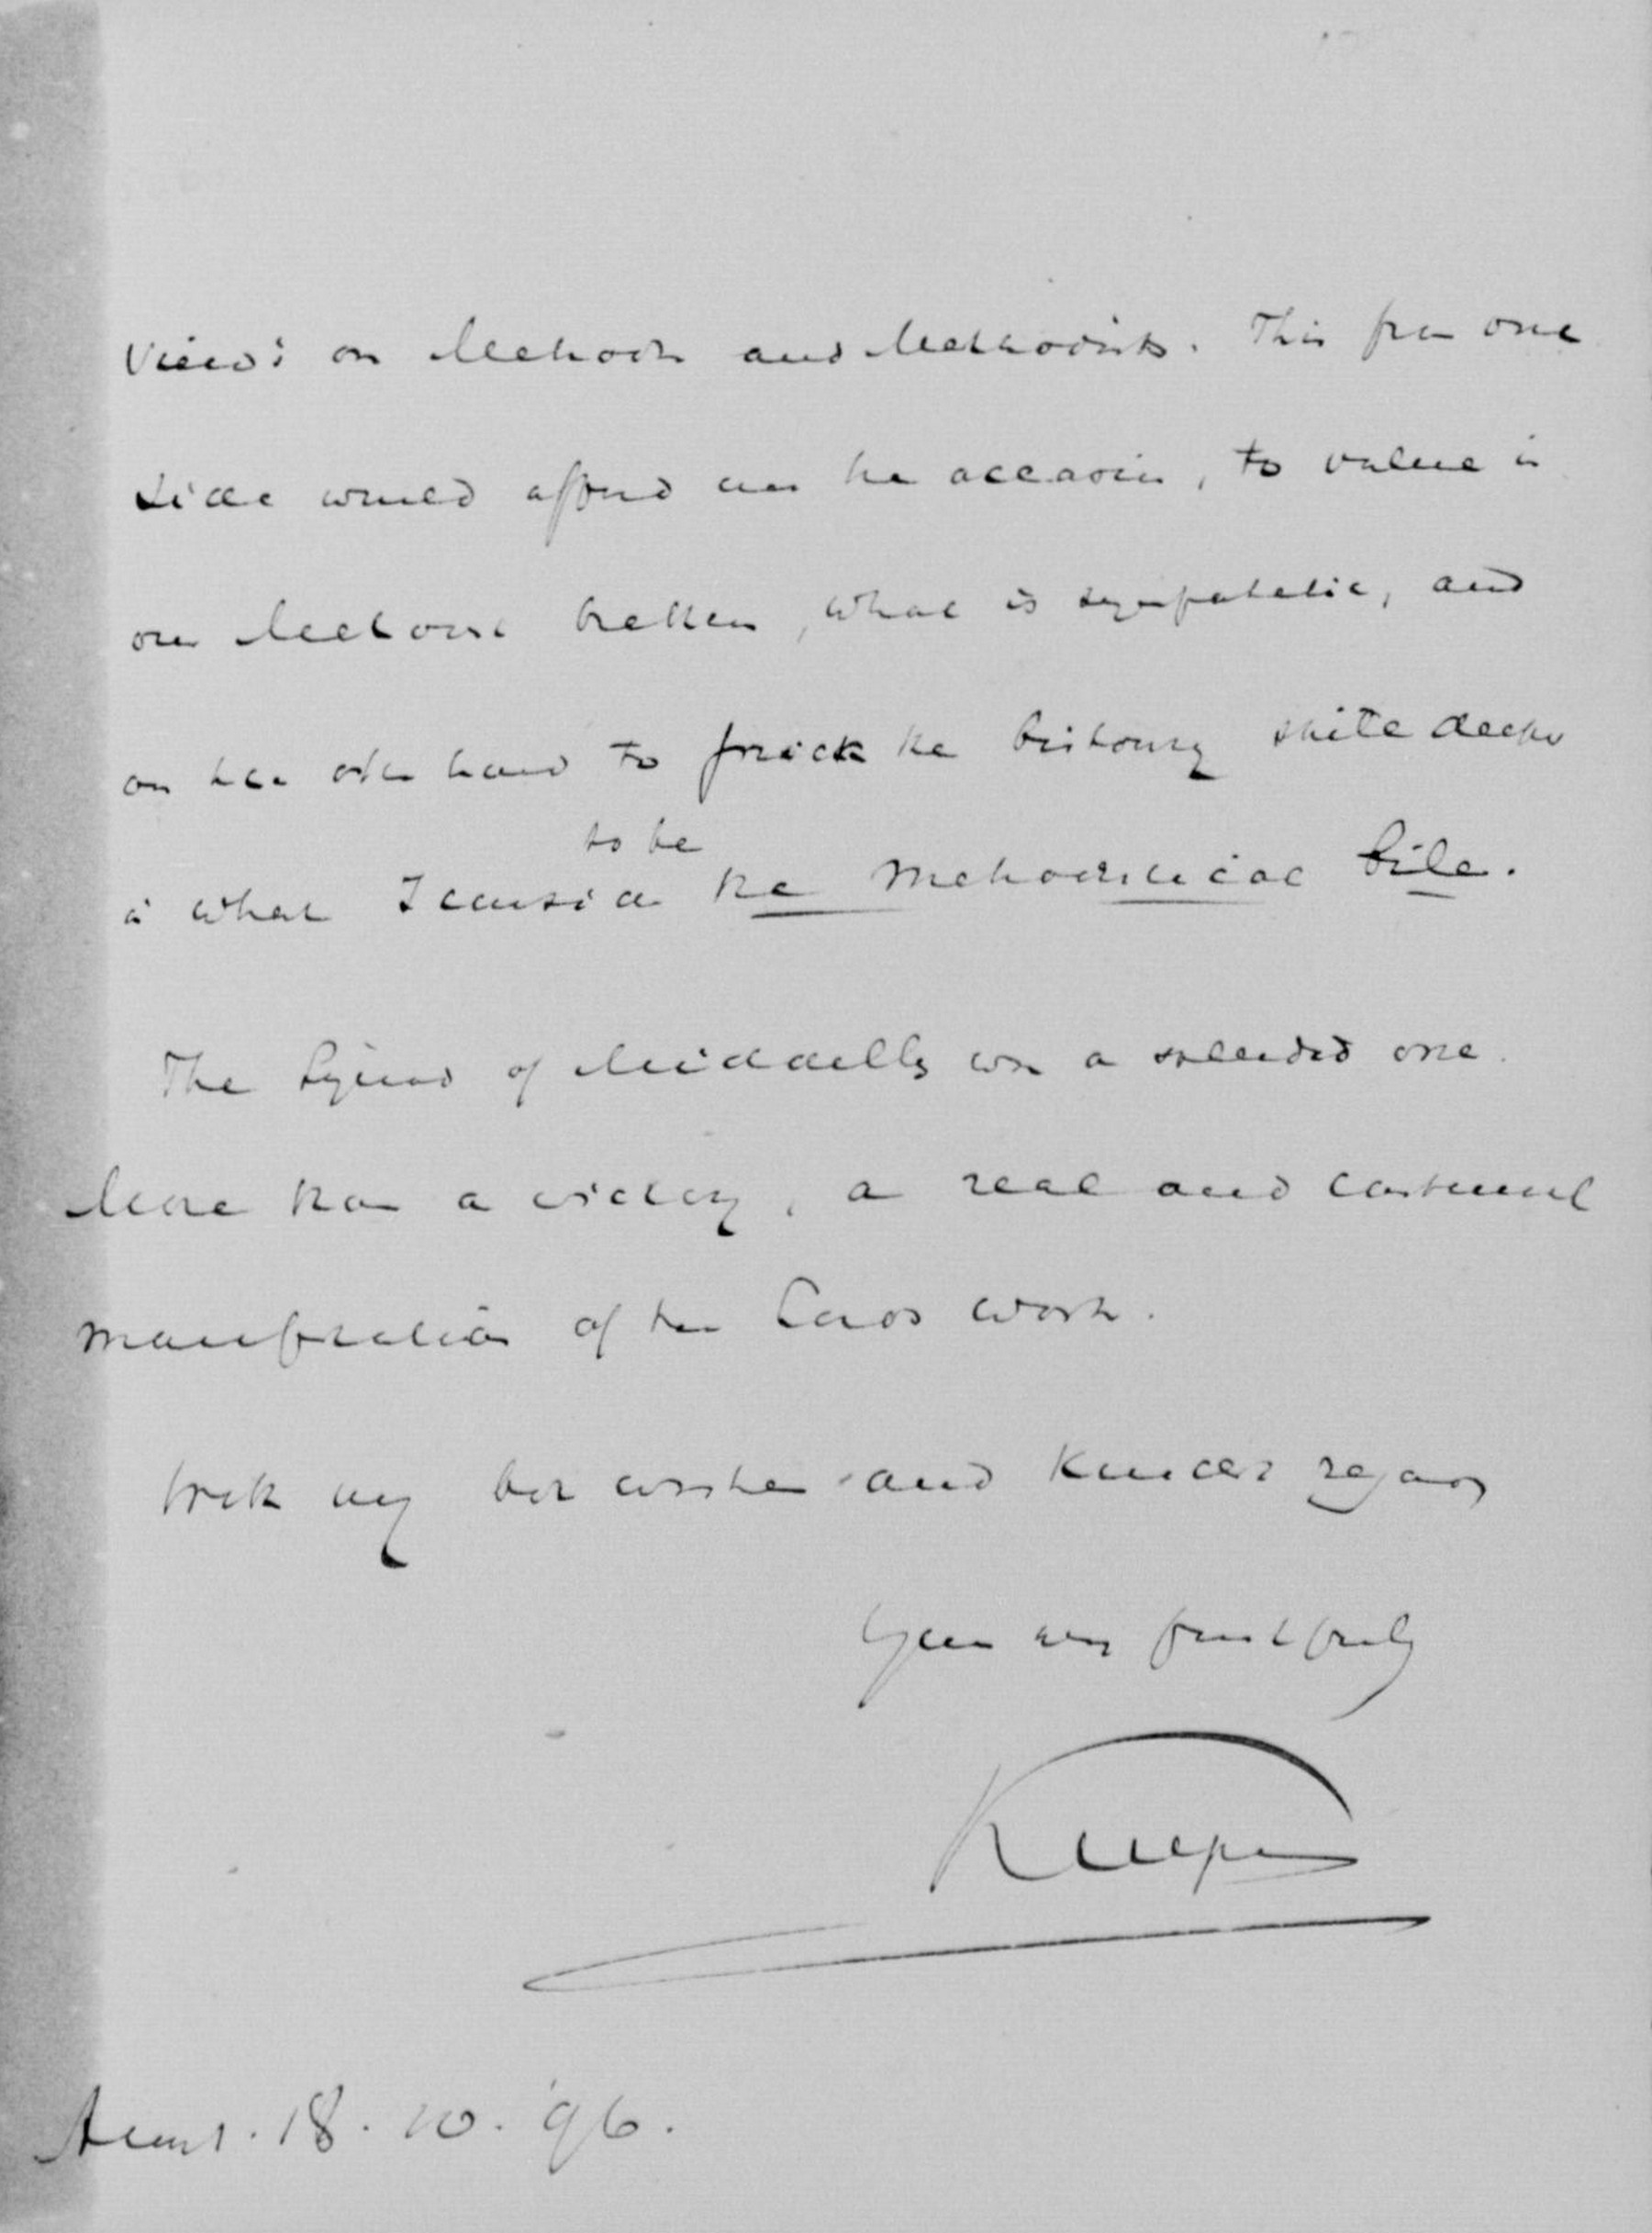 views on Method and Methodists. This from one
side would afford me the occasion, to value in
our Methodist brethren, what is sympathetic, and
on the other hand to prick the bistoury quite deeper
to be
in what I consider the Methodistical bile.
The Synod of Middelbg was a splendid one.
More than a victory, a real and
manifestation of the Lords work.
With my best wishes and kindest regards
Yours very
Kuyper
Amst. 18.10.'96.